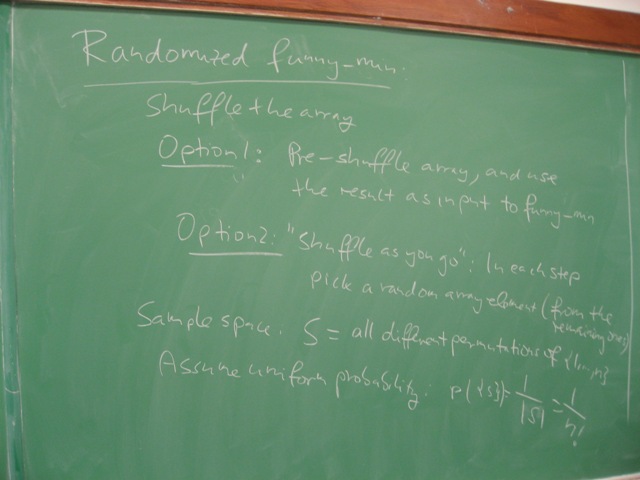 Randomized funny-min:
Shuffle the array
Option 1: Pre-shuffle array, and use
the result as input to funny-min
Option 2: "Shuffle as you go": In each step
pick a random array element (from the
remaining ones)
Sample space: S = all different permutations of {1..n}
Assume uniform probability: P({s}) = 1/|S| = 1/n!